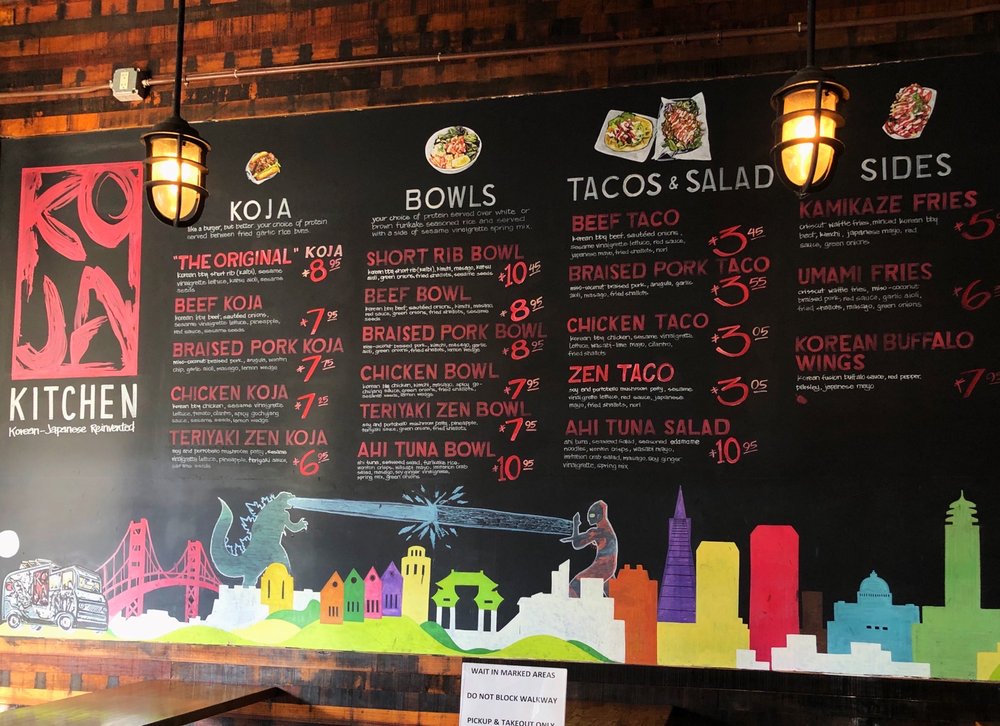 KOJA
KITCHEN
Korean-Japanese Reinvented
KOJA
like a burger, but better. your choice of protein
served between fried garlic rice buns.
"THE ORIGINAL" KOJA
korean bbq short rib (kalbi), sesame
vinaigrette lettuce, katsu aioli, sesame
seeds
$8.95
BEEF KOJA
korean bbq beef, sautéed onions,
sesame vinaigrette lettuce, pineapple,
red sauce, sesame seeds
$7.95
BRAISED PORK KOJA
miso-coconut braised pork, arugula, wonton
chip, garlic aioli, masago, lemon wedge
$7.75
CHICKEN KOJA
korean bbq chicken, sesame vinaigrette
lettuce, tomato, cilantro, spicy gochujang
sauce, sesame seeds, lemon wedge
$7.25
TERIYAKI ZEN KOJA
soy and portobello mushroom patty, sesame
vinaigrette lettuce, pineapple, teriyaki sauce,
sesame seeds
$6.95
BOWLS
your choice of protein served over white or
brown furikake seasoned rice and served
with a side of sesame vinaigrette spring mix.
SHORT RIB BOWL
korean bbq short rib (kalbi), kimchi, masago, katsu
aioli, green onions, fried shallots, sesame seeds
$10.45
BEEF BOWL
korean bbq beef, sautéed onions, kimchi, masago,
red sauce, green onions, fried shallots, sesame
seeds
$8.95
BRAISED PORK BOWL
miso-coconut braised pork, kimchi, masago, garlic
aioli, green onions, fried shallots, lemon wedge
$8.95
CHICKEN BOWL
korean bbq chicken, kimchi, masago, spicy go-
chujang sauce, green onions, fried shallots,
sesame seeds, lemon wedge
$7.95
TERIYAKI ZEN BOWL
soy and portobello mushroom patty, pineapple,
teriyaki sauce, green onions, fried shallots
$7.95
AHI TUNA BOWL
ahi tuna, seaweed salad, furikake rice,
wonton crisps, wasabi mayo, imitation crab
salad, masago, soy ginger vinaigrette,
spring mix, green onions
$10.95
TACOS & SALAD
BEEF TACO
korean bbq beef, sautéed onions,
sesame vinaigrette lettuce, red sauce,
japanese mayo, fried shallots, nori
$3.45
BRAISED PORK TACO
miso-coconut braised pork, arugula, garlic
aioli, masago, fried shallots
$3.55
CHICKEN TACO
korean bbq chicken, sesame vinaigrette
lettuce, wasabi-lime mayo, cilantro,
fried shallots
$3.05
ZEN TACO
soy and portobello mushroom patty, sesame
vinaigrette lettuce, red sauce, japanese
mayo, fried shallots, nori
$3.05
AHI TUNA SALAD
ahi tuna, seaweed salad, seasoned edamame
noodles, wonton crisps, wasabi mayo,
imitation crab salad, masago, soy ginger
vinaigrette, spring mix
$10.95
SIDES
KAMIKAZE FRIES
crisscut waffle fries, minced korean bbq
beef, kimchi, japanese mayo, red
sauce, green onions
$5
UMAMI FRIES
crisscut waffle fries, miso-coconut
braised pork, red sauce, garlic aioli,
fried shallots, masago, green onions
$6
KOREAN BUFFALO
WINGS
korean fusion buffalo sauce, red pepper,
parsley, japanese mayo
$7.95
WAIT IN MARKED AREAS
DO NOT BLOCK WALKWAY
PICKUP & TAKEOUT ONLY